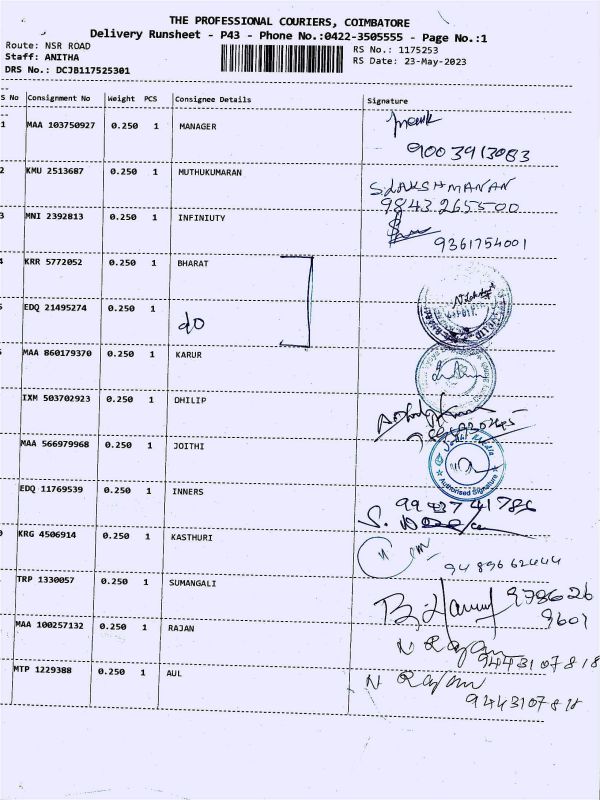 THE PROFESSIONAL COURIERS, COIMBATORE
Delivery Runsheet - P43 - Phone No.:0422-3505555 - Page No.:1
Route: NSR ROAD
RS No.: 1175253
Staff: ANITHA
RS Date: 23-May-2023
DRS No.: DCJB117525301
S No Consignment No Weight PCS Consignee Details Signature
1 MAA 103750927 0.250 1 MANAGER
9003913083
2 KMU 2513687 0.250 1 MUTHUKUMARAN
S.LAKSHMANAN
9843265500
3 MNI 2392813 0.250 1 INFINIUTY
9361754001
4 KRR 5772052 0.250 1 BHARAT
EDQ 21495274 0.250 1
do
MAA 860179370 0.250 1 KARUR
IXM 503702923 0.250 1 DHILIP
MAA 566979968 0.250 1 JOITHI
Authorised Signature
EDQ 11769539 0.250 1 INNERS
9993741786
KRG 4506914 0.250 1 KASTHURI
9489662444
TRP 1330057 0.250 1 SUMANGALI
978626
9601
MAA 100257132 0.250 1 RAJAN
N Rajan
9443107818
MTP 1229388 0.250 1 AUL
N Rajan
9443107818